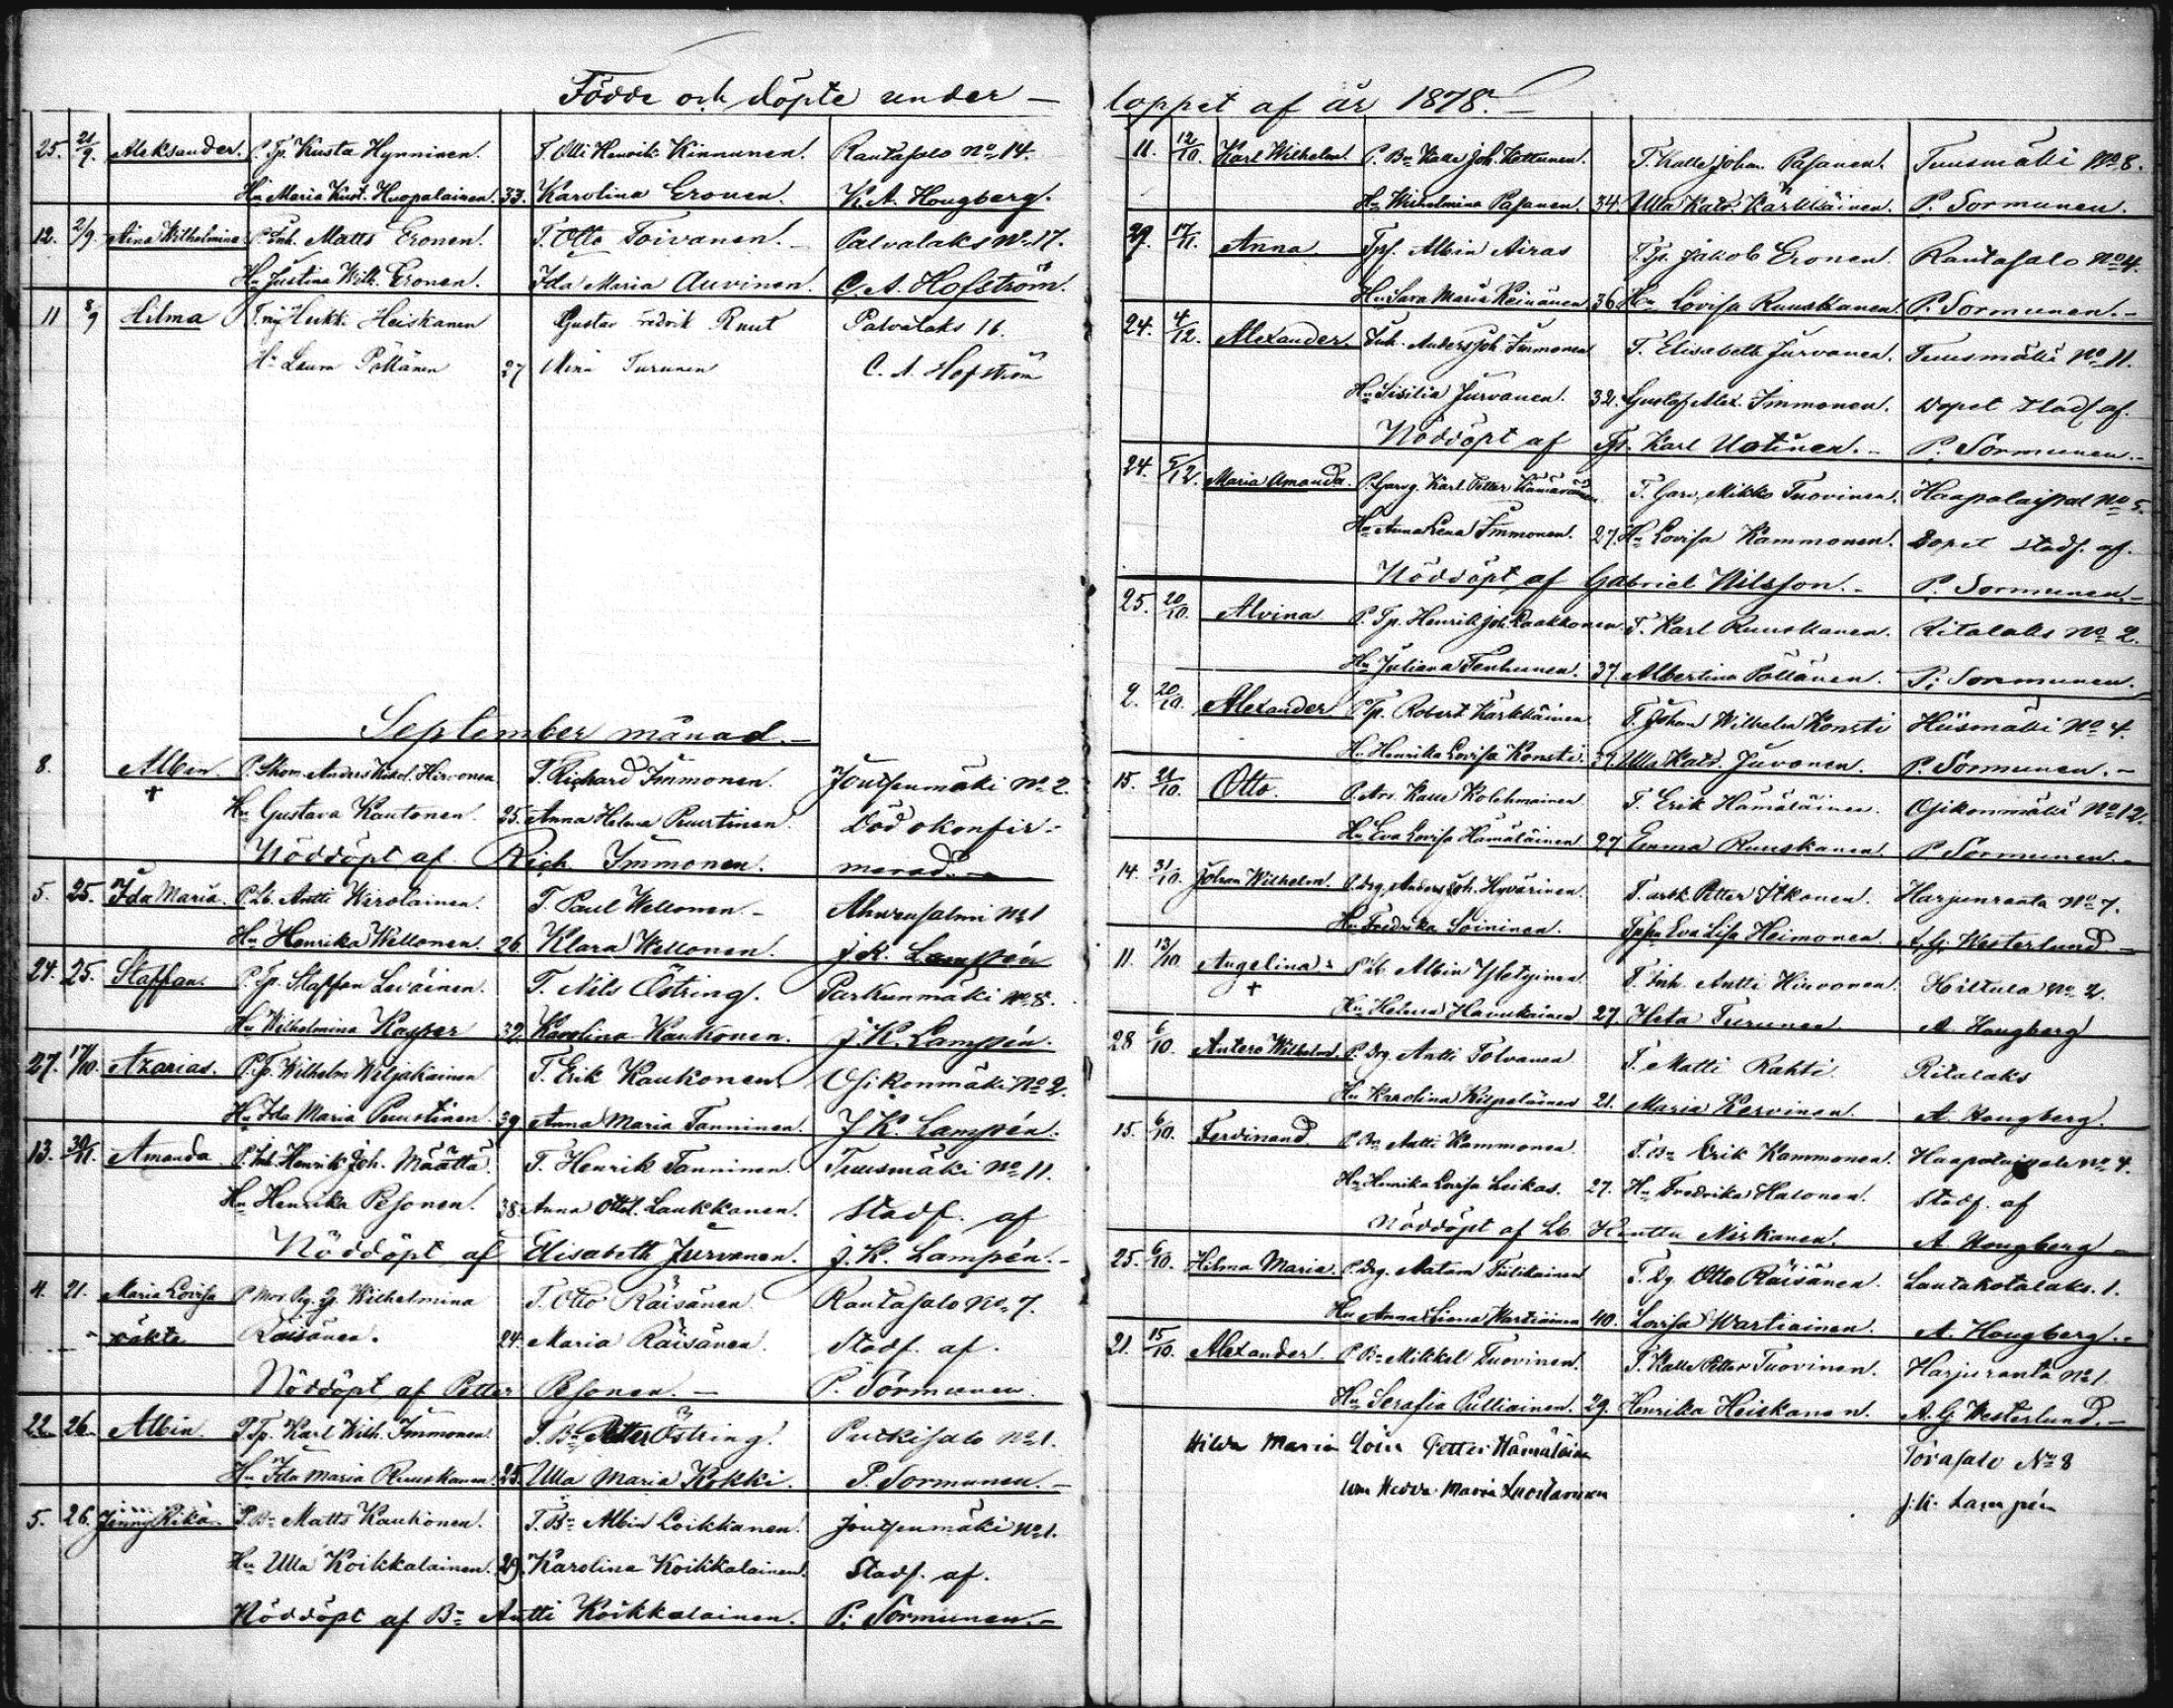 Födde och döpte under –
25. 21/9. Aleksander. P. Tp. Kusta Hynninen. T. Olli Henrik Kinnunen. Rantasalo No 14.
Hu Maria Kust. Huopalainen. 33. Karolina Eronen. K. A. Hougberg.
12. 2/9. Aina Wilhelmina P. Inh. Matts Eronen. T. Otto Toivanen. Palvalaks No 17.
Hu Justina Wilh. Eronen. Ida Maria Auvinen. C. A. Hofström.
11 8/9 Hilma Heikk. Heiskanen Gustav Fredrik Ruut Palvalaks 16.
Hu Laura Pöllänen 27 Mina Turunen C. A. Hofström
September månad. –
8. Albin. P. Skom. Anders Hirvonen T. Richard Immonen. Joutsenmäki No 2.
† Hu Gustava Kautonen. 35. Anna Helena Puustinen. Död okonfir-
Nöddöpt af Rich Immonen. merad.
5. 25. Ida Maria. P. Lb. Antti Wirolainen. T. Paul Wellonen – Ahvensalmi No 1
Hu Henrika Wellonen. 26. Klara Wellonen. J. K. Lampén
24. 25. Staffan. P. Tp. Staffan Leväinen. T. Nils Östring. Parkunmäki No 8.
Hu Wilhelmina Kayser 32. Karolina Kaukonen. J. K. Lampén.
27. 17/10. Azarias. P. Tp. Wilhelm Wiljakainen T. Erik Kaukonen Osikonmäki No 2.
Hu Ida Maria Puustinen. 39. Anna Maria Tanninen. J. K. Lampén.
13. 30/11. Amanda P. Inh. Henrik Joh. Määttä. T. Henrik Tanninen. Tuusmäki No 11.
Hu Henrika Pesonen. 38. Anna Laukkanen. Stadf. af
Nöddöpt af Elisabeth Jurvanen. J. K. Lampén. –
4. 21. Maria Lovisa P. Wilhelmina T. Otto Räisänen Rantasalo No 7.
oäkta Räisänen. 24. Maria Räisänen. Stadf. af.
Nöddöpt af Petter Pesonen. – P. Sormunen.
22. 26. Albin. P. Tp. Karl Wilh. Immonen. T. Bn Petter Östring. Purkisalo No 1.
Hu Ida Maria Ruuskanen. 25. Ulla Maria Kokki. P. Sormunen. –
5. 26. Jenny Rika. P. Bn Matts Kaukonen. T. Bn Albin Loikkanen. Joutsenmäki No 1.
Hu Ulla Koikkalainen. 29. Karolina Koikkalainen. Stadf. af.
Nöddöpt af Bn Antti Koikkalainen. P. Sormunen. –
loppet af år 1878. –
11. 12/10. Karl Wilhelm. P. Bn Kalle Joh. Kettunen. T. Kalle Johan Pasanen. Tuusmäki No 8.
Hu Wilhelmina Pasanen. 34. Ulla Katr. Karkkäinen. P. Sormunen.
29. 17/11. Anna. Tps. Albin Airas T. Tp. Jakob Eronen. Rantasalo No 4.
Hu Sara Maria Reinänen 36. Hu Lovisa Ruuskanen. P. Sormunen. –
24. 4/12. Alexander. Inh. Anders Joh. Immonen T. Elisabeth Jurvanen. Tuusmäki No 11.
Hu Sisilia Jurvanen. 32. Gustaf Alex. Immonen. Dopet stadf. af.
Nöddöpt af Tp. Karl Uotinen. – P. Sormunen. –
24. 5/12. Maria Amanda. P. Garg. Karl Petter T. Garv. Mikko Tuovinen. Haapalaigial No 5.
Hu Anna Lena Immonen. 27. Hu Lovisa Kammonen. Dopet stadf. af.
Nöddöpt af Gabriel Nilsson. – P. Sormunen. –
25. 20/10. Alvina P. Tp. Henrik Joh. Laakkonen. T. Karl Ruuskanen. Ritalaks No 2.
Hu Juliana Tenhunen. 37. Albertina Pöllänen. P. Sormunen.
2. 20/10. Alexander P. Tp. Robert Karkkäinen T. Johan Wilhelm Konsti Hiismäki No 4
Hu Henrika Lovisa Konsti. 37. Ulla Katr. Juvonen. P. Sormunen. –
15. 21/10. Otto. P. Arr. Kalle Kolehmainen T. Erik Hämäläinen Osikonmäki No 12.
Hu Eva Lovisa Hämäläinen 27 Emma Ruuskanen. P. Sormunen. –
14. 31/10. Johan Wilhelm. P. Drg. Anders Joh. Hyvärinen T. Petter Itkonen. Harjunranta No 7.
Hu Fredrika Soininen. Eva Lisa Heimonen. A. G. Westerlund –
11. 13/10 Angelina P. Lb. Albin T. Inh. Antti Hirvonen. Hiltula No 2.
† Hu Helena Haukkainen 27. Turunen A. Hougberg
28 6/10. Antero Wilhelm. P. Drg. Antti Tolvanen T. Matti Rahti. Ritalaks
Hu Karolina Kilpeläinen 21. Maria Kervinen. A. Hougberg.
15. 6/10. Ferdinand P. Bn Antti Kammonen T. Bn Erik Kammonen. Haapalaigiale No 4.
Hu Henrika Lovisa Leikas. 27. Hu Fredrika Halonen. Stadf. af
Nöddöpt af Lb. Niskanen. A. Hougberg –
25. 6/10. Hilma Maria. P. Drg. Aatam Tiilikainen T. Dg. Otto Räisänen. Lautakotalaks. 1.
Hu Anna Liena Wartiainen 40. Lovisa Wartiainen. A. Hougberg. –
21. 15/10. Alexander. P. Bn Mikkel Tuovinen. T. Kalle Petter Tuovinen. Harjuranta No 1.
Hu Serafia Pulliainen. 29. Henrika Heiskanen. A. G. Westerlund. –
Hilda Maria Petter Hämäläinen Torasalo No 8
Hedda Maria Luostarinen J. K. Lampén